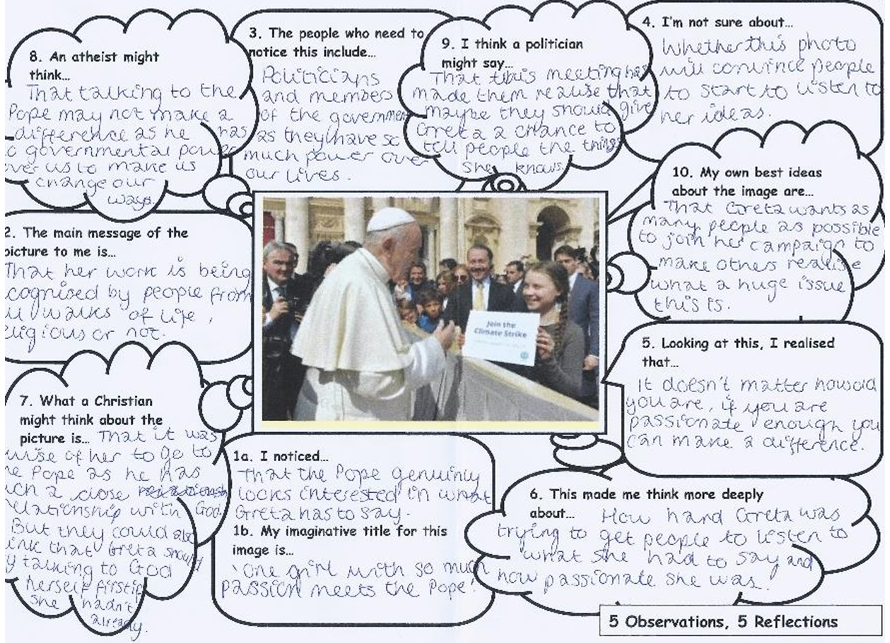 8. An atheist might
think...
That talking to the
Pope may not make a
difference as he has
o governmental power
over us to make us
change our
ways.
3. The people who need to
notice this include...
Politicians
and members
of the governmen
as they have so
much power over
our lives.
9. I think a politician
might say...
That this meeting has
made them realise that
maybe they should give
Greta a chance to
tell people the things
she knows.
4. I'm not sure about...
Whether this photo
will convince people
to start to listen to
her ideas.
10. My own best ideas
about the image are...
That Greta wants as
many people as possible
to join her campaign to
make others realise
what a huge issue
this is.
2. The main message of the
picture to me is...
That her work is being
cognised by people from
all walks of life,
eligious or not.
Join the
Climate Strike
5. Looking at this, I realised
that...
It doesn't matter how old
you are, if you are
passionate enough you
can make a difference.
7. What a Christian
might think about the
picture is... That it was
wise of her to go to
e Pope as he has
ch a close
elationship with God
But they could als
ink that Greta should
y talking to God
herself first if
she hadn't
already.
1a. I noticed...
That the Pope genuinly
looks interested in what
Greta has to say.
1b. My imaginative title for this
image is...
'One girl with so much
passion meets the Pope'
6. This made me think more deeply
about... How hard Greta was
trying to get people to listen to
what she had to say and
how passionate she was.
5 Observations, 5 Reflections